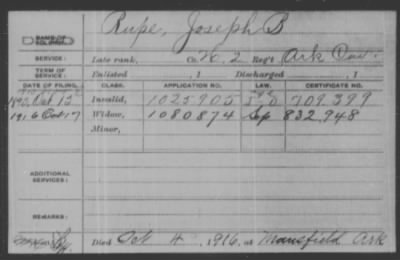 Rupe, Joseph B
NAME OF SOLDIER:
SERVICE: Late rank, Co. H, 2 Reg't Ark Cav.
TERM OF SERVICE: Enlisted , 1 Discharged , 1
DATE OF FILING. CLASS. APPLICATION NO. LAW. CERTIFICATE NO.
Oct 15 Invalid, 1025905 709.399
1916 Oct 17 Widow, 1080874 832,948
Minor,
ADDITIONAL SERVICES:
REMARKS:
Died Oct 4, 1916, at Mansfield Ark